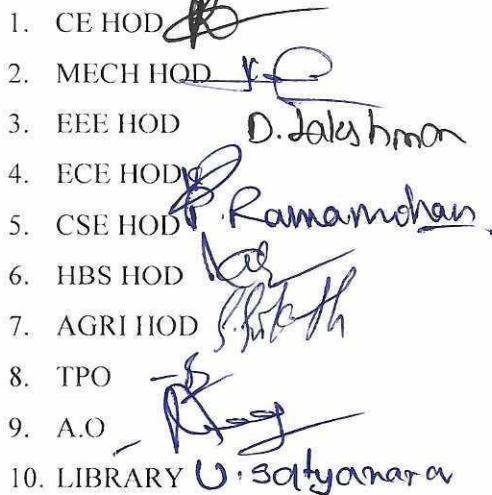 1. CE HOD
2. MECH HOD
3. EEE HOD D. Lakshman
4. ECE HOD
5. CSE HOD P. Ramamohan
6. HBS HOD
7. AGRI HOD
8. TPO
9. A.O
10. LIBRARY U. Satyanara